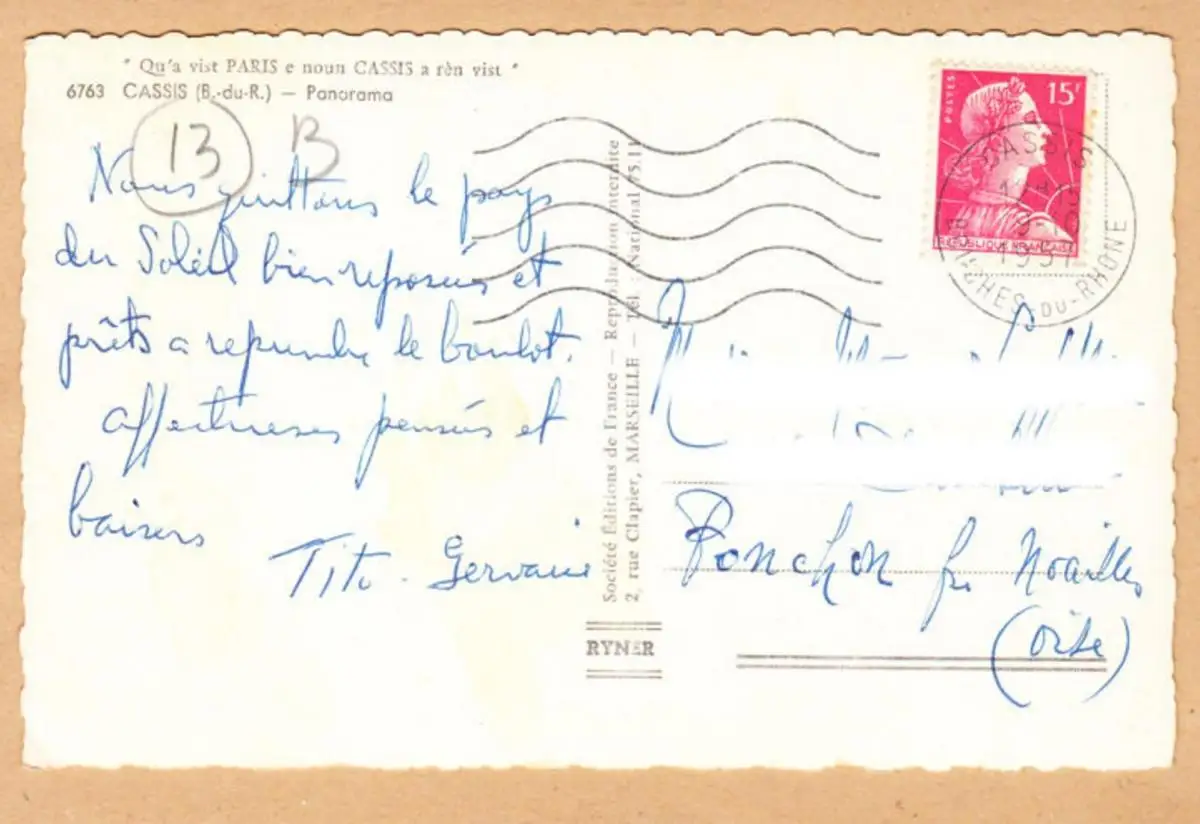 " Qu'a vist PARIS e noun CASSIS a rèn vist "
6763 CASSIS (B.-du-R.) — Panorama
13 B
Nous quittons le pays
du Soleil bien reposés et
prêts a reprendre le boulot.
affectueuses pensées et
baisers
Tito. Gervaise
Société Éditions de France — Reproduction interdite
2, rue Clapier, MARSEILLE — Tél. : National 75.11
RYNER
POSTES
15F
REPUBLIQUE FRANÇAISE
CASSIS
1957
BOUCHES-DU-RHONE
Ponchon par Noailles
(oise)